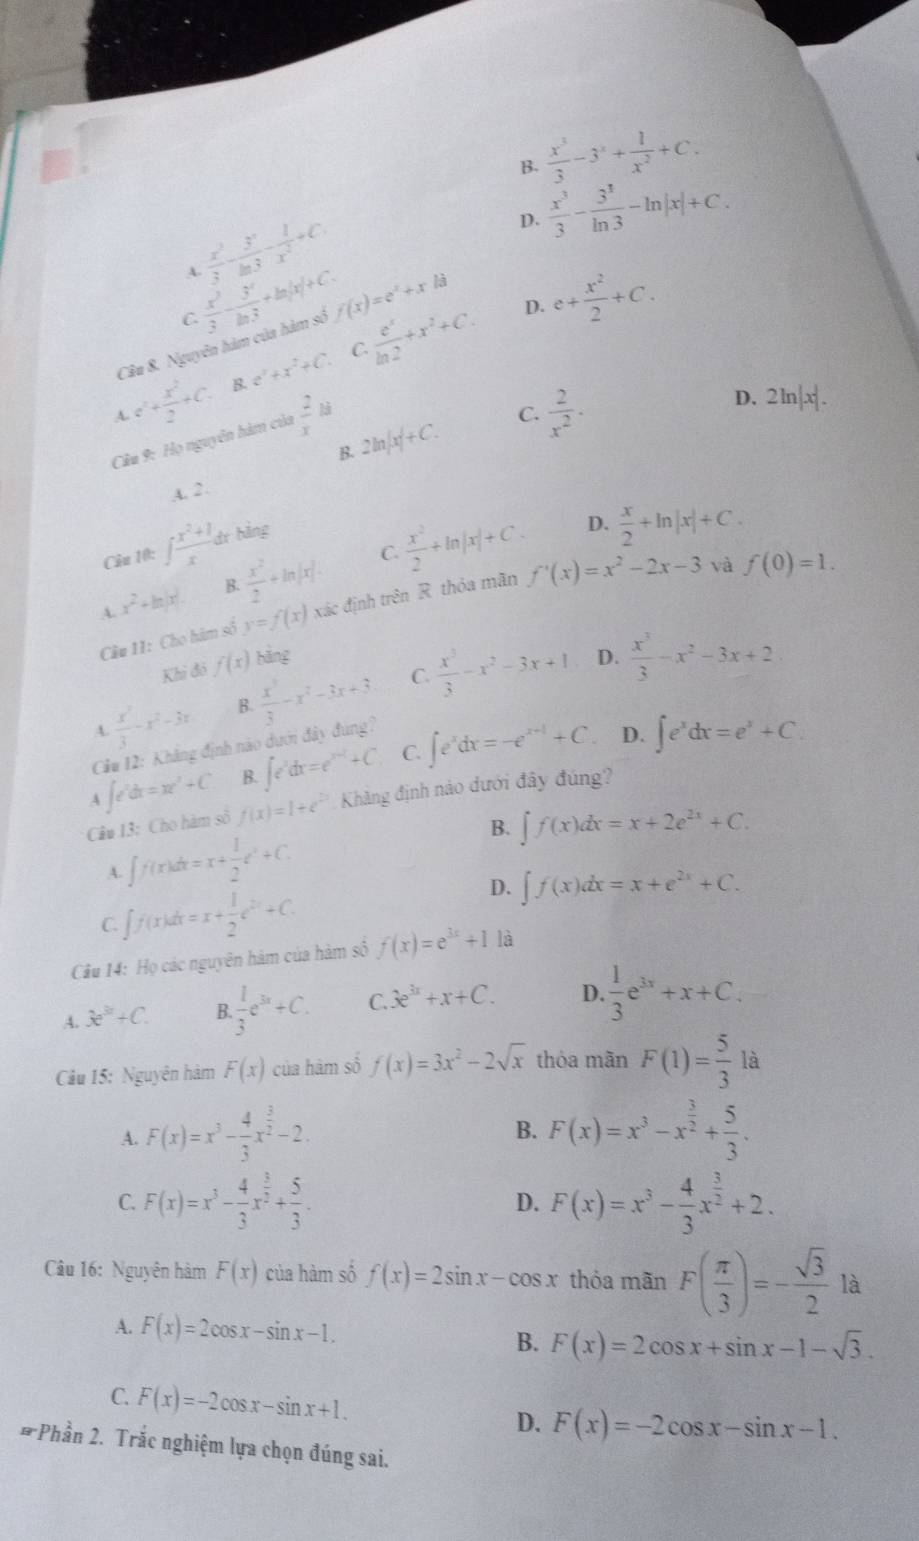 B. x³/3 − 3ˣ + 1/x² + C.
A. x³/3 − 3ˣ/ln 3 − 1/x² + C.
D. x³/3 − 3ˣ/ln 3 − ln|x| + C.
C. x³/3 − 3ˣ/ln 3 + ln|x| + C.
Câu 8. Nguyên hàm của hàm số f(x) = eˣ + x là
A. eˣ + x²/2 + C. B. eˣ + x² + C. C. eˣ/ln 2 + x² + C. D. e + x²/2 + C.
Câu 9: Họ nguyên hàm của 2/x là
A. 2. B. 2ln|x| + C. C. 2/x². D. 2ln|x|.
Câu 10: ∫ (x²+1)/x dx bằng
A. x² + ln|x|. B. x²/2 + ln|x|. C. x²/2 + ln|x| + C. D. x/2 + ln|x| + C.
Câu 11: Cho hàm số y = f(x) xác định trên R thỏa mãn f'(x) = x² − 2x − 3 và f(0) = 1.
Khi đó f(x) bằng
A. x³/3 − x² − 3x B. x³/3 − x² − 3x + 3 C. x³/3 − x² − 3x + 1 D. x³/3 − x² − 3x + 2.
Câu 12: Khẳng định nào dưới đây đúng?
A ∫eˣdx = xeˣ + C B. ∫eˣdx = eˣ⁺¹ + C C. ∫eˣdx = −eˣ⁺¹ + C. D. ∫eˣdx = eˣ + C.
Câu 13: Cho hàm số f(x) = 1 + e²ˣ. Khẳng định nào dưới đây đúng?
A. ∫f(x)dx = x + 1/2 eˣ + C. B. ∫f(x)dx = x + 2e²ˣ + C.
C. ∫f(x)dx = x + 1/2 e²ˣ + C. D. ∫f(x)dx = x + e²ˣ + C.
Câu 14: Họ các nguyên hàm của hàm số f(x) = e³ˣ + 1 là
A. 3e³ˣ + C. B. 1/3 e³ˣ + C. C. 3e³ˣ + x + C. D. 1/3 e³ˣ + x + C.
Câu 15: Nguyên hàm F(x) của hàm số f(x) = 3x² − 2√x thỏa mãn F(1) = 5/3 là
A. F(x) = x³ − 4/3 x^(3/2) − 2. B. F(x) = x³ − x^(3/2) + 5/3.
C. F(x) = x³ − 4/3 x^(3/2) + 5/3. D. F(x) = x³ − 4/3 x^(3/2) + 2.
Câu 16: Nguyên hàm F(x) của hàm số f(x) = 2sin x − cos x thỏa mãn F(π/3) = −√3/2 là
A. F(x) = 2cos x − sin x − 1. B. F(x) = 2cos x + sin x − 1 − √3.
C. F(x) = −2cos x − sin x + 1. D. F(x) = −2cos x − sin x − 1.
Phần 2. Trắc nghiệm lựa chọn đúng sai.